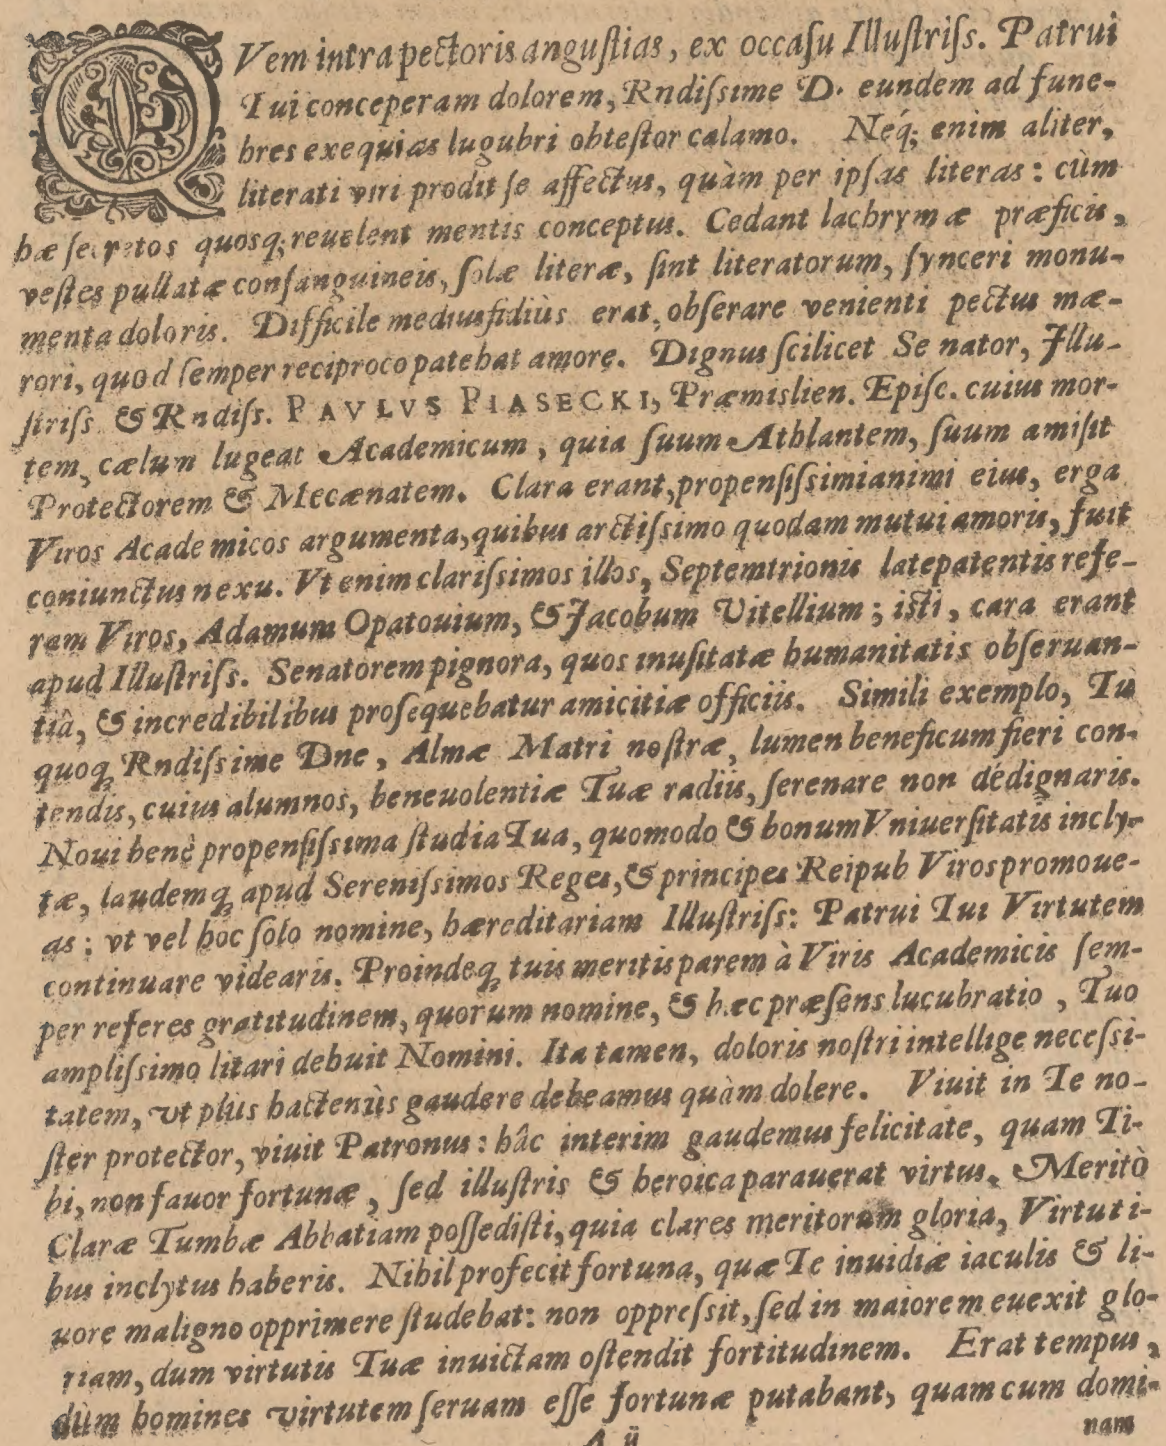 QVem intra pectoris angustias, ex occasu Illustriss. Patrui
Tui conceperam dolorem, Rndissime D. eundem ad fune-
bres exequias lugubri obtestor calamo. Neq; enim aliter,
literati viri prodit se affectus, quàm per ipsas literas: cùm
hæ secretos quosq; reuelent mentis conceptus. Cedant lachrymæ præficis,
vestes pullatæ consanguineis, solæ literæ, sint literatorum, synceri monu-
menta doloris. Difficile mediusfidiùs erat, obserare venienti pectus mæ-
rori, quod semper reciproco patebat amore. Dignus scilicet Senator, Illu-
striss & Rndiss. PAVLVS PIASECKI, Præmislien. Episc. cuius mor-
tem, cælum lugeat Academicum, quia suum Athlantem, suum amisit
Protectorem & Mecænatem. Clara erant, propensissimi animi eius, erga
Viros Academicos argumenta, quibus arctissimo quodam mutui amoris, fuit
coniunctus nexu. Vt enim clarissimos illos, Septemtrionis latepatentis refe-
ram Viros, Adamum Opatouium, & Jacobum Vitellium; isti, cara erant
apud Illustriss. Senatorem pignora, quos inusitatæ humanitatis obseruan-
tiâ, & incredibilibus prosequebatur amicitiæ officiis. Simili exemplo, Tu
quoq; Rndissime Dne, Almæ Matri nostræ, lumen beneficum fieri con-
tendis, cuius alumnos, beneuolentiæ Tuæ radiis, serenare non dedignaris.
Noui benè propensissima studia Tua, quomodo & bonum Vniuersitatis incly-
tæ, laudemq; apud Serenissimos Reges, & principes Reipub Viros promoue-
as: vt vel hoc solo nomine, hæreditariam Illustriss: Patrui Tui Virtutem
continuare videaris. Proindeq; tuis meritis parem à Viris Academicis sem-
per referes gratitudinem, quorum nomine, & hæc præsens lucubratio, Tuo
amplissimo litari debuit Nomini. Ita tamen, doloris nostri intellige necessi-
tatem, vt plùs hactenùs gaudere debeamus quàm dolere. Viuit in Te no-
ster protector, viuit Patronus: hâc interim gaudemus felicitate, quam Ti-
bi, non fauor fortunæ, sed illustris & heroica parauerat virtus. Meritò
Claræ Tumbæ Abbatiam possedisti, quia clares meritorum gloria, Virtuti-
bus inclytus haberis. Nihil profecit fortuna, quæ Te inuidiæ iaculis & li-
uore maligno opprimere studebat: non oppressit, sed in maiorem euexit glo-
riam, dum virtutis Tuæ inuictam ostendit fortitudinem. Erat tempus,
dùm homines virtutem seruam esse fortunæ putabant, quam cum domi-
A ij
nam